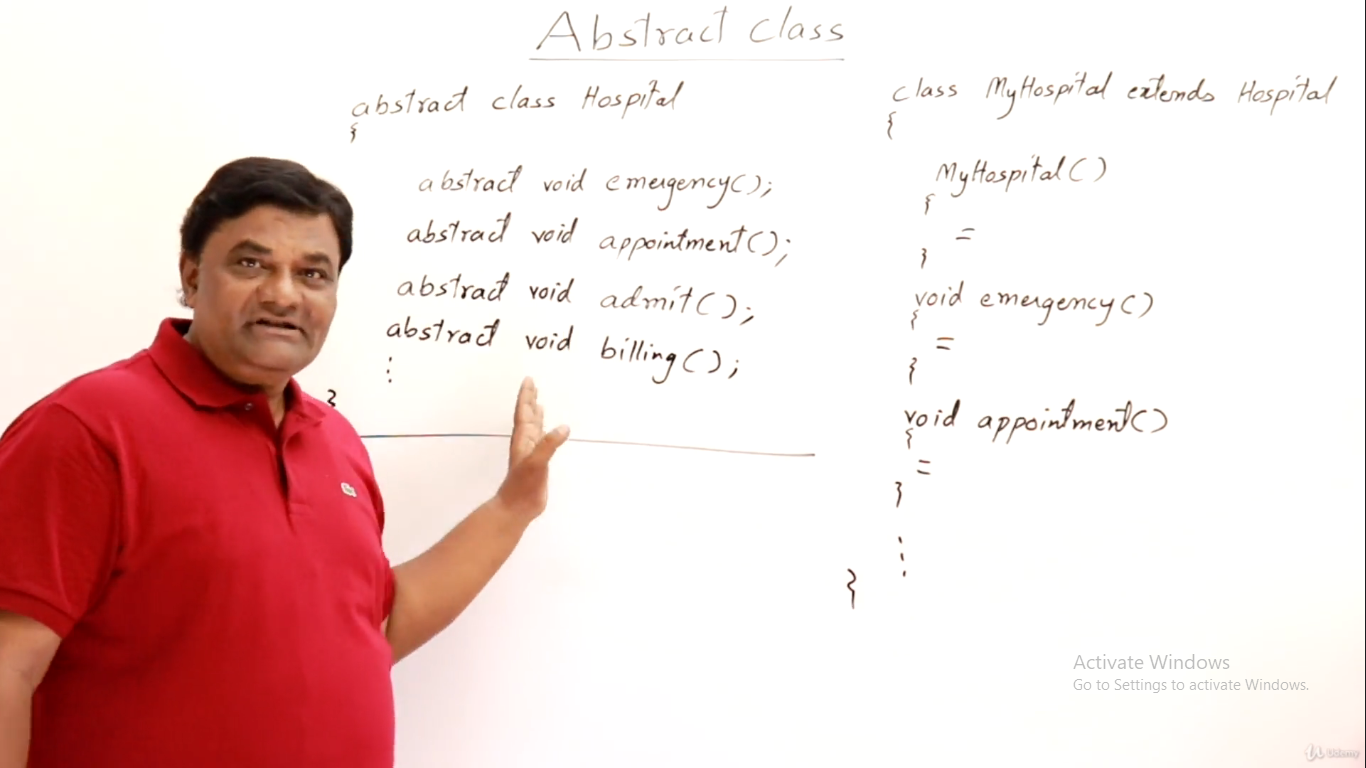 Abstract Class
abstract class Hospital
{
abstract void emergency();
abstract void appointment();
abstract void admit();
abstract void billing();
⋮
}
class MyHospital extends Hospital
{
MyHospital()
{
=
}
void emergency()
{
=
}
void appointment()
{
=
}
⋮
}
Activate Windows
Go to Settings to activate Windows.
Udemy